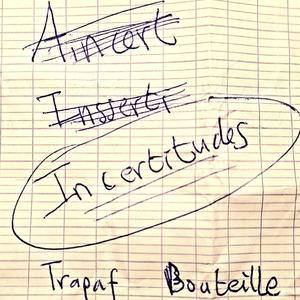 Aincert
Inserti
Incertitudes
Trapaf Bouteille